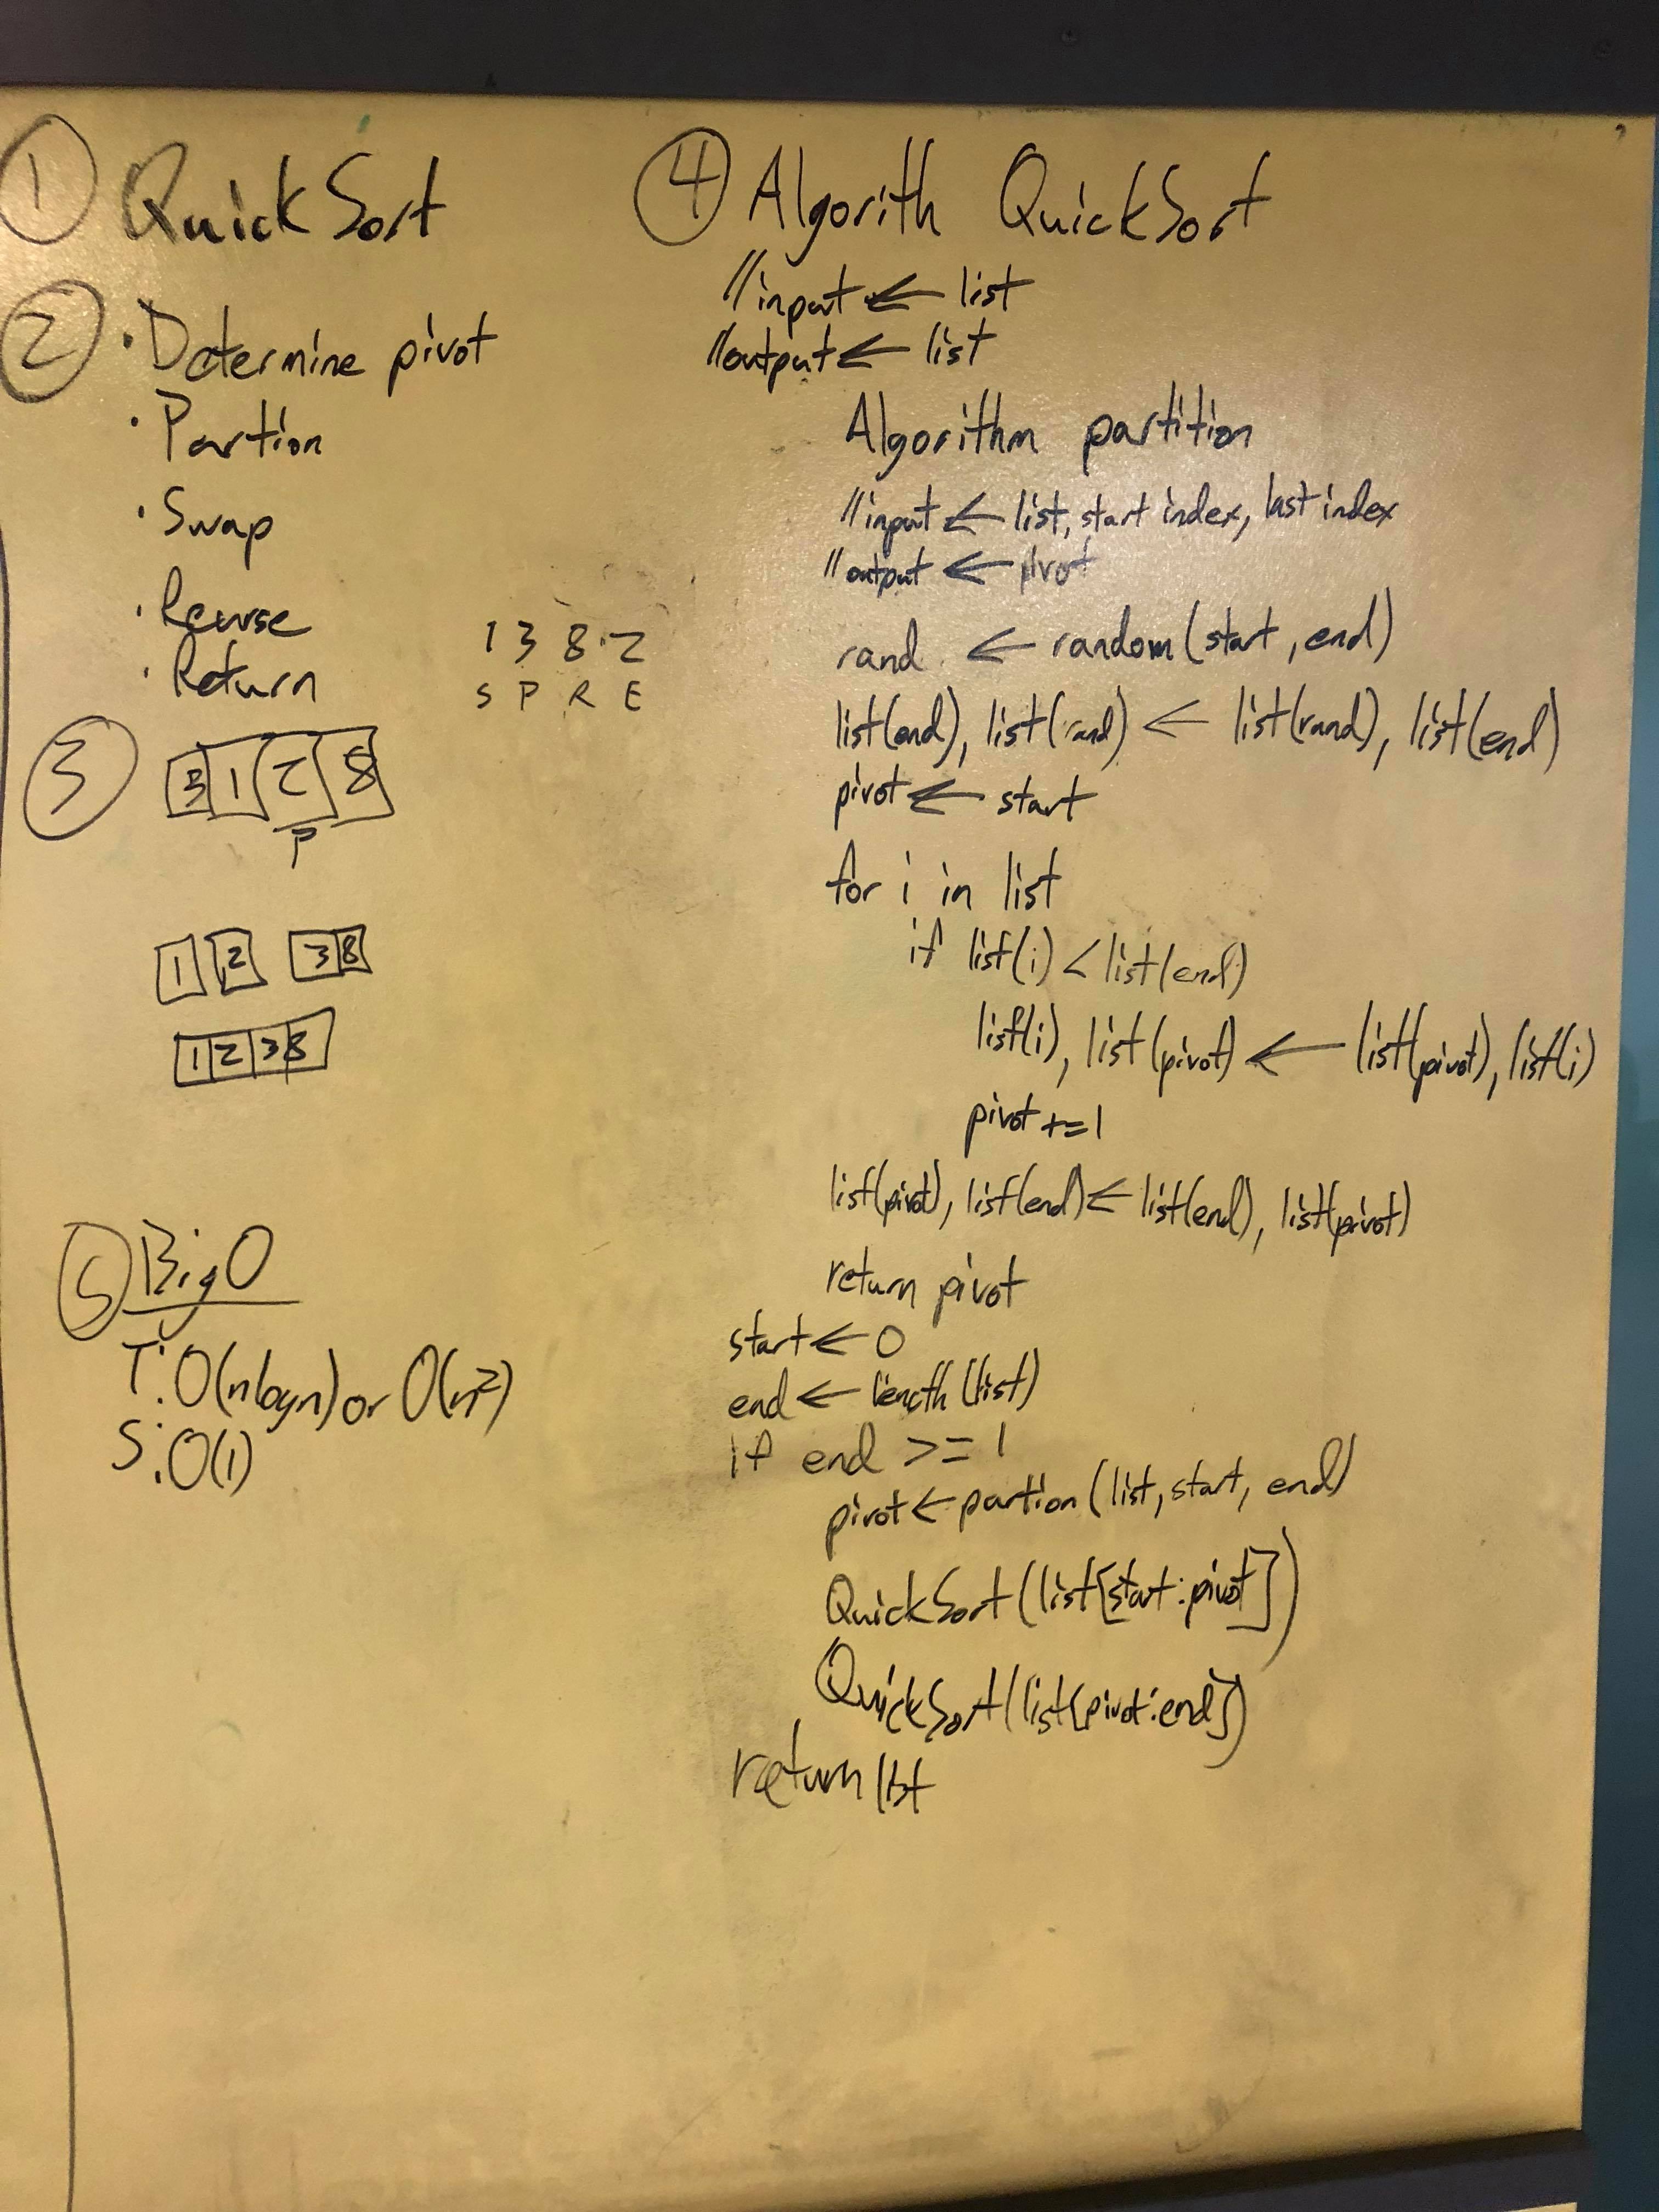 ① QuickSort
② · Determine pivot
· Partion
· Swap
· Recurse
· Return
1 3 8 2
S P R E
③ 3 1 2 8
P
1 2 3 8
1 2 3 8
④ Algorith QuickSort
// input ← list
// output ← list
Algorithm partition
// input ← list, start index, last index
// output ← pivot
rand ← random(start, end)
list(end), list(rand) ← list(rand), list(end)
pivot ← start
for i in list
if list(i) < list(end)
list(i), list(pivot) ← list(pivot), list(i)
pivot += 1
list(pivot), list(end) ← list(end), list(pivot)
return pivot
start ← 0
end ← length(list)
if end >= 1
pivot ← partion(list, start, end)
QuickSort(list[start:pivot])
QuickSort(list[pivot:end])
return list
⑤ Big O
T: O(nlogn) or O(n²)
S: O(1)